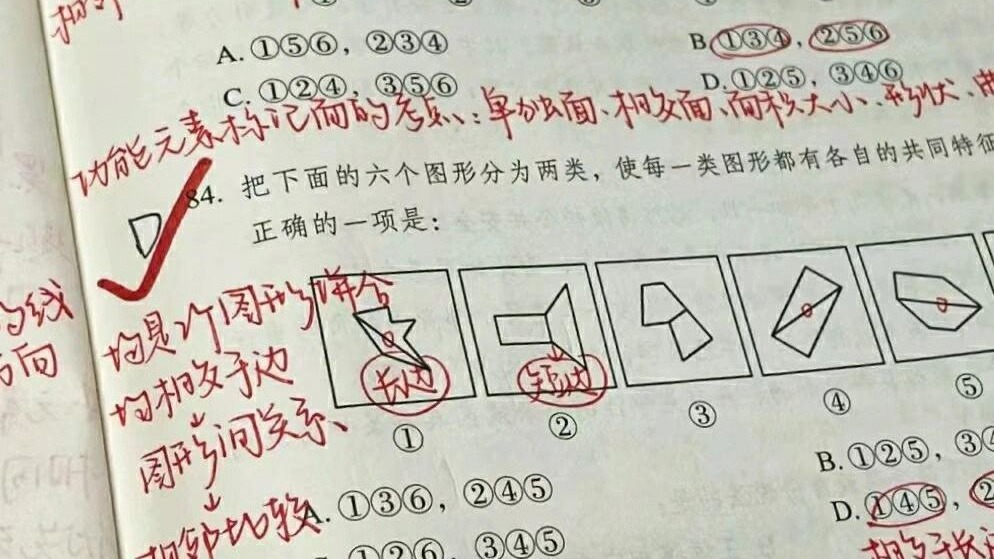 A. ①⑤⑥，②③④
B ①③④，②⑤⑥
C. ①②④，③⑤⑥
D. ①②⑤，③④⑥
功能元素标记面的考点：单独面、相交面、面积大小、形状、
D
84. 把下面的六个图形分为两类，使每一类图形都有各自的共同特征
正确的一项是：
均是2个图形拼合
均相交于边
图形间关系、
相邻比较
长边
短边
① ② ③ ④ ⑤
A. ①③⑥，②④⑤
B. ①②⑤，③④
①②⑥，③④⑤
D. ①④⑤，②